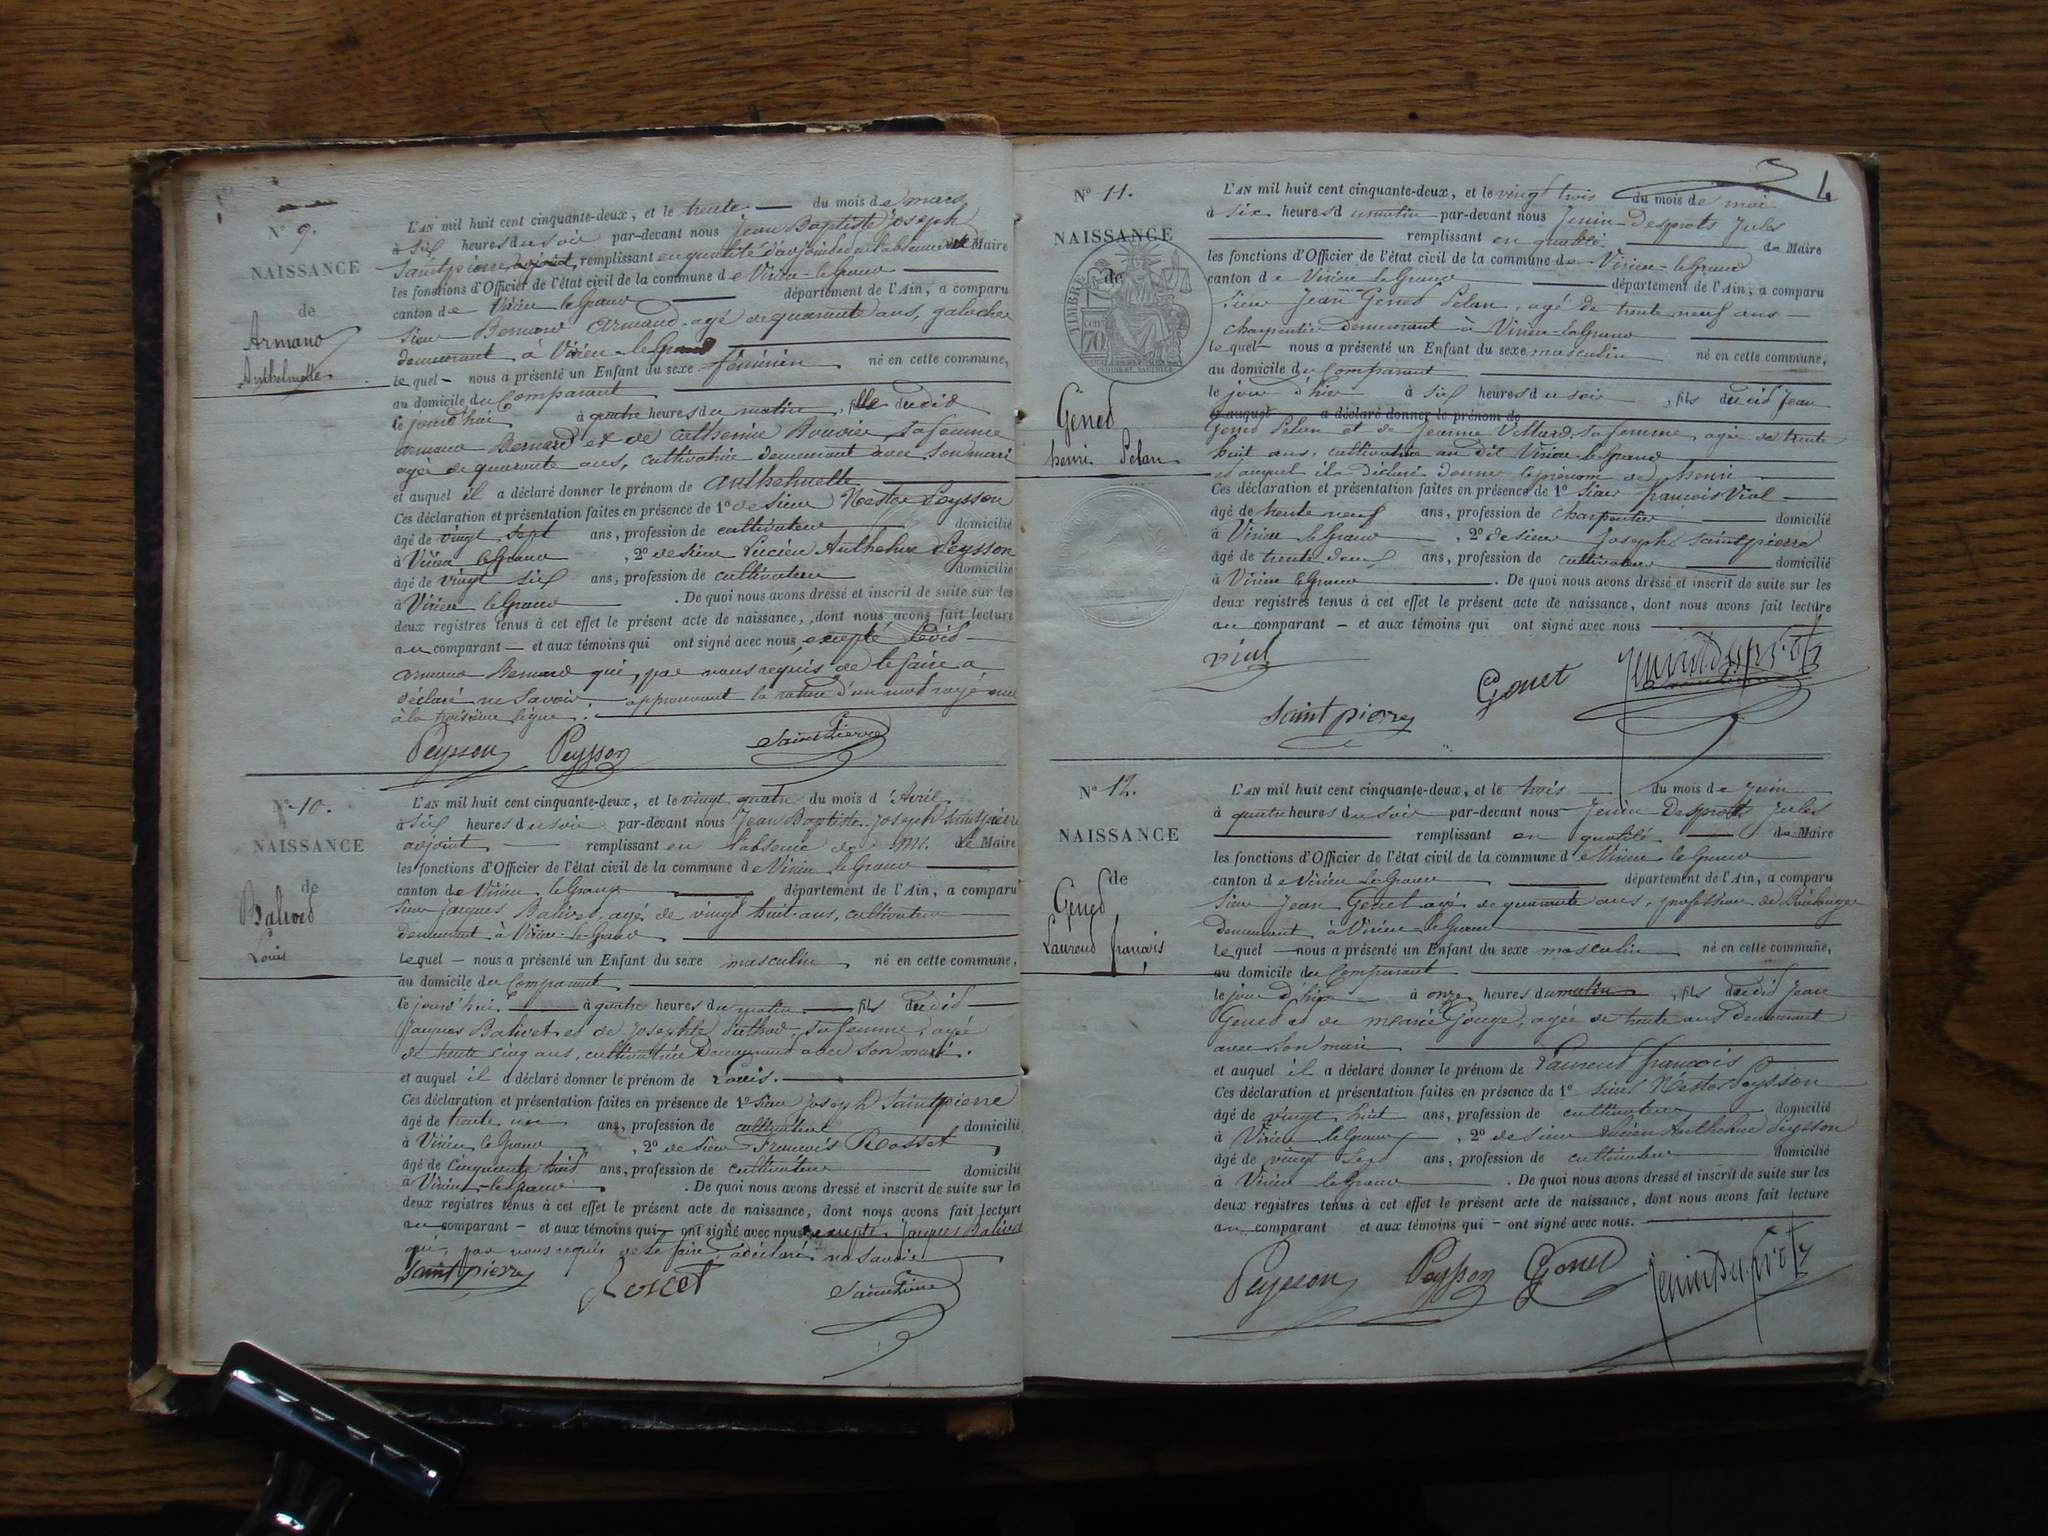 N° 9.
NAISSANCE
de
Armand
Anthelmette
L'AN mil huit cent cinquante-deux, et le trente du mois de mars
à six heures du soir par-devant nous Jean Baptiste Joseph
Saintpierre, adjoint, remplissant en qualité d'adjoint en l'absence du Maire
les fonctions d'Officier de l'état civil de la commune de Virieu-le-Grand
canton de Virieu le Grand département de l'Ain, a comparu
Sieur Bernard Armand, agé de quarante ans, galocher
demeurant à Virieu-le-Grand
lequel nous a présenté un Enfant du sexe féminin né en cette commune,
au domicile du Comparant
le jourd'hui à quatre heures du matin, fille dudit
armand Bernard et de Catherine Bouvier, sa femme
agée de quarante ans, cultivatrice demeurant avec son mari
et auquel il a déclaré donner le prénom de anthelmette
Ces déclaration et présentation faites en présence de 1° de sieur Nestor Peysson
âgé de vingt sept ans, profession de cultivateur domicilié
à Virieu le Grand, 2° de sieur Lucien Anthelme Peysson
âgé de vingt six ans, profession de cultivateur domicilié
à Virieu le Grand. De quoi nous avons dressé et inscrit de suite sur les
deux registres tenus à cet effet le présent acte de naissance, dont nous avons fait lecture
au comparant et aux témoins qui ont signé avec nous, excepté ledit
armand Bernard qui, par nous requis de le faire a
déclaré ne savoir. approuvant la rature d'un mot rayé nul
à la troisième ligne.
Peysson Peysson Saintpierre
N° 10.
NAISSANCE
de
Balived
Louis
L'AN mil huit cent cinquante-deux, et le vingt quatre du mois d'Avril
à six heures du soir par-devant nous Jean Baptiste Joseph Saintpierre
adjoint remplissant en l'absence de M. le Maire
les fonctions d'Officier de l'état civil de la commune de Virieu le Grand
canton de Virieu le Grand département de l'Ain, a comparu
Sieur Jacques Balivet, agé de vingt huit ans, cultivateur
demeurant à Virieu-le-Grand
lequel nous a présenté un Enfant du sexe masculin né en cette commune,
au domicile du Comparant
le jourd'hui à quatre heures du matin fils dudit
Jacques Balivet et de Josephte sa femme, agée
de trente cinq ans, cultivatrice demeurant avec son mari.
et auquel il a déclaré donner le prénom de Louis.
Ces déclaration et présentation faites en présence de 1° Sieur Joseph Saintpierre
âgé de trente ans, profession de cultivateur domicilié
à Virieu le Grand, 2° de sieur François Rosset
âgé de cinquante huit ans, profession de cultivateur domicilié
à Virieu-le-Grand. De quoi nous avons dressé et inscrit de suite sur les
deux registres tenus à cet effet le présent acte de naissance, dont nous avons fait lecture
au comparant et aux témoins qui ont signé avec nous excepté Jacques Balivet
qui, par nous requis de le faire, a déclaré ne savoir
Saint pierre Rosset Saintpierre
4
N° 11.
NAISSANCE
de
TIMBRE
70
Gened
henri Pelan
L'AN mil huit cent cinquante-deux, et le vingt trois du mois de mai
à six heures du matin par-devant nous Jenin Desprots Jules
remplissant en qualité de Maire
les fonctions d'Officier de l'état civil de la commune de Virieu-le-Grand
canton de Virieu le Grand département de l'Ain, a comparu
Sieur Jean Gened Pelan, agé de trente neuf ans
charpentier demeurant à Virieu-le-Grand
lequel nous a présenté un Enfant du sexe masculin né en cette commune,
au domicile du Comparant
le jour d'hier à six heures du soir, fils dudit Jean
et auquel a déclaré donner le prénom de
Gened Pelan et de Jeanne Villard sa femme, agée de trente
huit ans, cultivatrice au dit Virieu-le-Grand
et auquel il a déclaré donner le prénom de henri
Ces déclaration et présentation faites en présence de 1° Sieur françois Vial
âgé de trente neuf ans, profession de charpentier domicilié
à Virieu le Grand, 2° de sieur Joseph Saintpierre
âgé de trente deux ans, profession de cultivateur domicilié
à Virieu le Grand. De quoi nous avons dressé et inscrit de suite sur les
deux registres tenus à cet effet le présent acte de naissance, dont nous avons fait lecture
au comparant et aux témoins qui ont signé avec nous
Vial
Saint pierre Genet Jenin Desprots
N° 12.
NAISSANCE
de
Gened
Laurend françois
L'AN mil huit cent cinquante-deux, et le trois du mois de Juin
à quatre heures du soir par-devant nous Jenin Desprots Jules
remplissant en qualité de Maire
les fonctions d'Officier de l'état civil de la commune de Virieu le Grand
canton de Virieu le Grand département de l'Ain, a comparu
Sieur Jean Genet agé de quarante ans, profession de Boulanger
demeurant à Virieu le Grand
lequel nous a présenté un Enfant du sexe masculin né en cette commune,
au domicile du Comparant
le jour d'hier à onze heures du matin, fils dudit Jean
Gened et de Marie Gouge, agée de trente ans demeurant
avec son mari
et auquel il a déclaré donner le prénom de Laurent françois
Ces déclaration et présentation faites en présence de 1° sieur Nestor Peysson
âgé de vingt huit ans, profession de cultivateur domicilié
à Virieu le Grand, 2° de sieur Lucien Anthelme Peysson
âgé de vingt sept ans, profession de cultivateur domicilié
à Virieu le Grand. De quoi nous avons dressé et inscrit de suite sur les
deux registres tenus à cet effet le présent acte de naissance, dont nous avons fait lecture
au comparant et aux témoins qui ont signé avec nous.
Peysson Peysson Genet Jenin Desprots